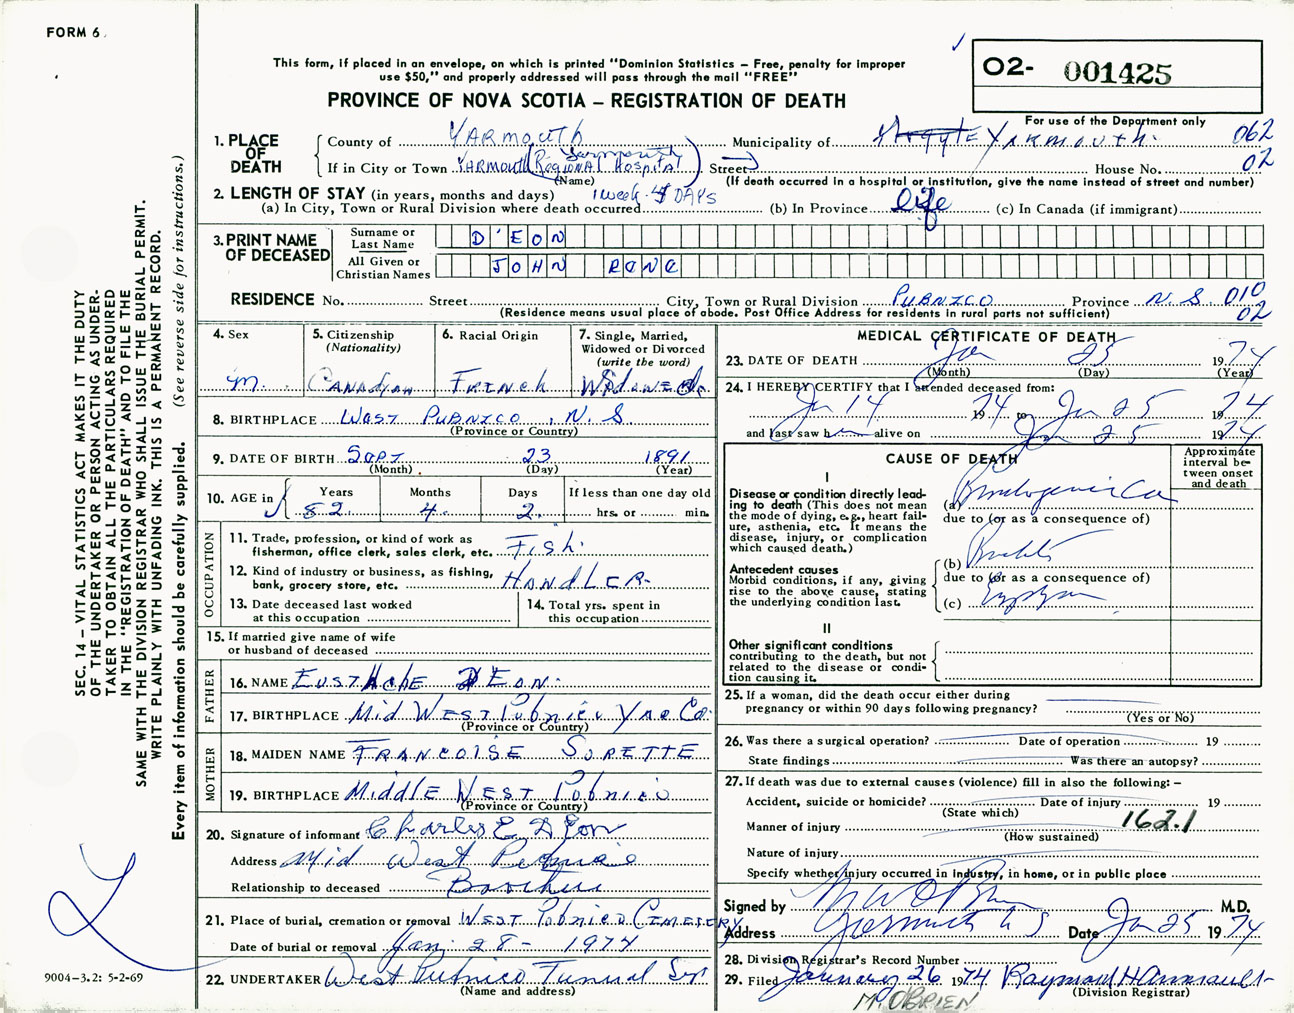 FORM 6
This form, if placed in an envelope, on which is printed "Dominion Statistics – Free, penalty for improper
use $50," and properly addressed will pass through the mail "FREE"
PROVINCE OF NOVA SCOTIA – REGISTRATION OF DEATH
02- 001425
For use of the Department only
1. PLACE OF DEATH
County of YARMOUTH Municipality of Argyle YARMOUTH 062
If in City or Town YARMOUTH (REGIONAL HOSPITAL Yarmouth) Street House No. 02
(Name) (If death occurred in a hospital or institution, give the name instead of street and number)
2. LENGTH OF STAY (in years, months and days) 1 week 4 DAYS
(a) In City, Town or Rural Division where death occurred (b) In Province life (c) In Canada (if immigrant)
3. PRINT NAME OF DECEASED
Surname or Last Name D'EON
All Given or Christian Names JOHN RENE
RESIDENCE No. Street City, Town or Rural Division PUBNICO Province N.S 010
02
(Residence means usual place of abode. Post Office Address for residents in rural parts not sufficient)
4. Sex M.
5. Citizenship (Nationality) CANADIAN
6. Racial Origin FRENCH
7. Single, Married, Widowed or Divorced (write the word) WIDOWED
8. BIRTHPLACE WEST PUBNICO, N.S
(Province or Country)
9. DATE OF BIRTH SEPT 23 1891
(Month) (Day) (Year)
10. AGE in Years 82 Months 4. Days 2. If less than one day old hrs. or min.
OCCUPATION
11. Trade, profession, or kind of work as fisherman, office clerk, sales clerk, etc. FISH
12. Kind of industry or business, as fishing, bank, grocery store, etc. HANDLER
13. Date deceased last worked at this occupation
14. Total yrs. spent in this occupation
15. If married give name of wife or husband of deceased
FATHER
16. NAME EUSTACHE D'EON
17. BIRTHPLACE Mid WEST Pubnico Yar Co.
(Province or Country)
MOTHER
18. MAIDEN NAME FRANCOISE SURETTE
19. BIRTHPLACE MIDDLE WEST Pubnico
(Province or Country)
20. Signature of informant Charles E D'Eon
Address Mid West Pubnico
Relationship to deceased Brother
21. Place of burial, cremation or removal WEST PUBNICO CEMETERY
Date of burial or removal Jan. 28 - 1974
22. UNDERTAKER West Pubnico Funeral
(Name and address)
MEDICAL CERTIFICATE OF DEATH
23. DATE OF DEATH Jan 25 1974
(Month) (Day) (Year)
24. I HEREBY CERTIFY that I attended deceased from:
Jan 14 1974 to Jan 25 1974
and last saw h alive on Jan 25 1974
CAUSE OF DEATH
Approximate interval between onset and death
I
Disease or condition directly leading to death (This does not mean the mode of dying, e.g., heart failure, asthenia, etc. It means the disease, injury, or complication which caused death.)
(a) Bronchogenic Ca
due to (or as a consequence of)
Antecedent causes
Morbid conditions, if any, giving rise to the above cause, stating the underlying condition last.
(b)
due to (or as a consequence of)
(c)
II
Other significant conditions
contributing to the death, but not related to the disease or condition causing it.
25. If a woman, did the death occur either during pregnancy or within 90 days following pregnancy?
(Yes or No)
26. Was there a surgical operation? Date of operation 19
State findings Was there an autopsy?
27. If death was due to external causes (violence) fill in also the following: –
Accident, suicide or homicide? Date of injury 19
(State which)
Manner of injury 162.1
(How sustained)
Nature of injury
Specify whether injury occurred in Industry, in home, or in public place
Signed by M W O'Brien M.D.
Address Yarmouth N S Date Jan 25 1974
28. Division Registrar's Record Number
29. Filed January 26 1974 Raymond H Amirault
(Division Registrar)
M. O'BRIEN
SEC. 14 – VITAL STATISTICS ACT MAKES IT THE DUTY
OF THE UNDERTAKER OR PERSON ACTING AS UNDER-
TAKER TO OBTAIN ALL THE PARTICULARS REQUIRED
IN THE "REGISTRATION OF DEATH" AND TO FILE THE
SAME WITH THE DIVISION REGISTRAR WHO SHALL ISSUE THE BURIAL PERMIT.
WRITE PLAINLY WITH UNFADING INK. THIS IS A PERMANENT RECORD.
Every item of information should be carefully supplied. (See reverse side for instructions.)
9004–3.2: 5-2-69